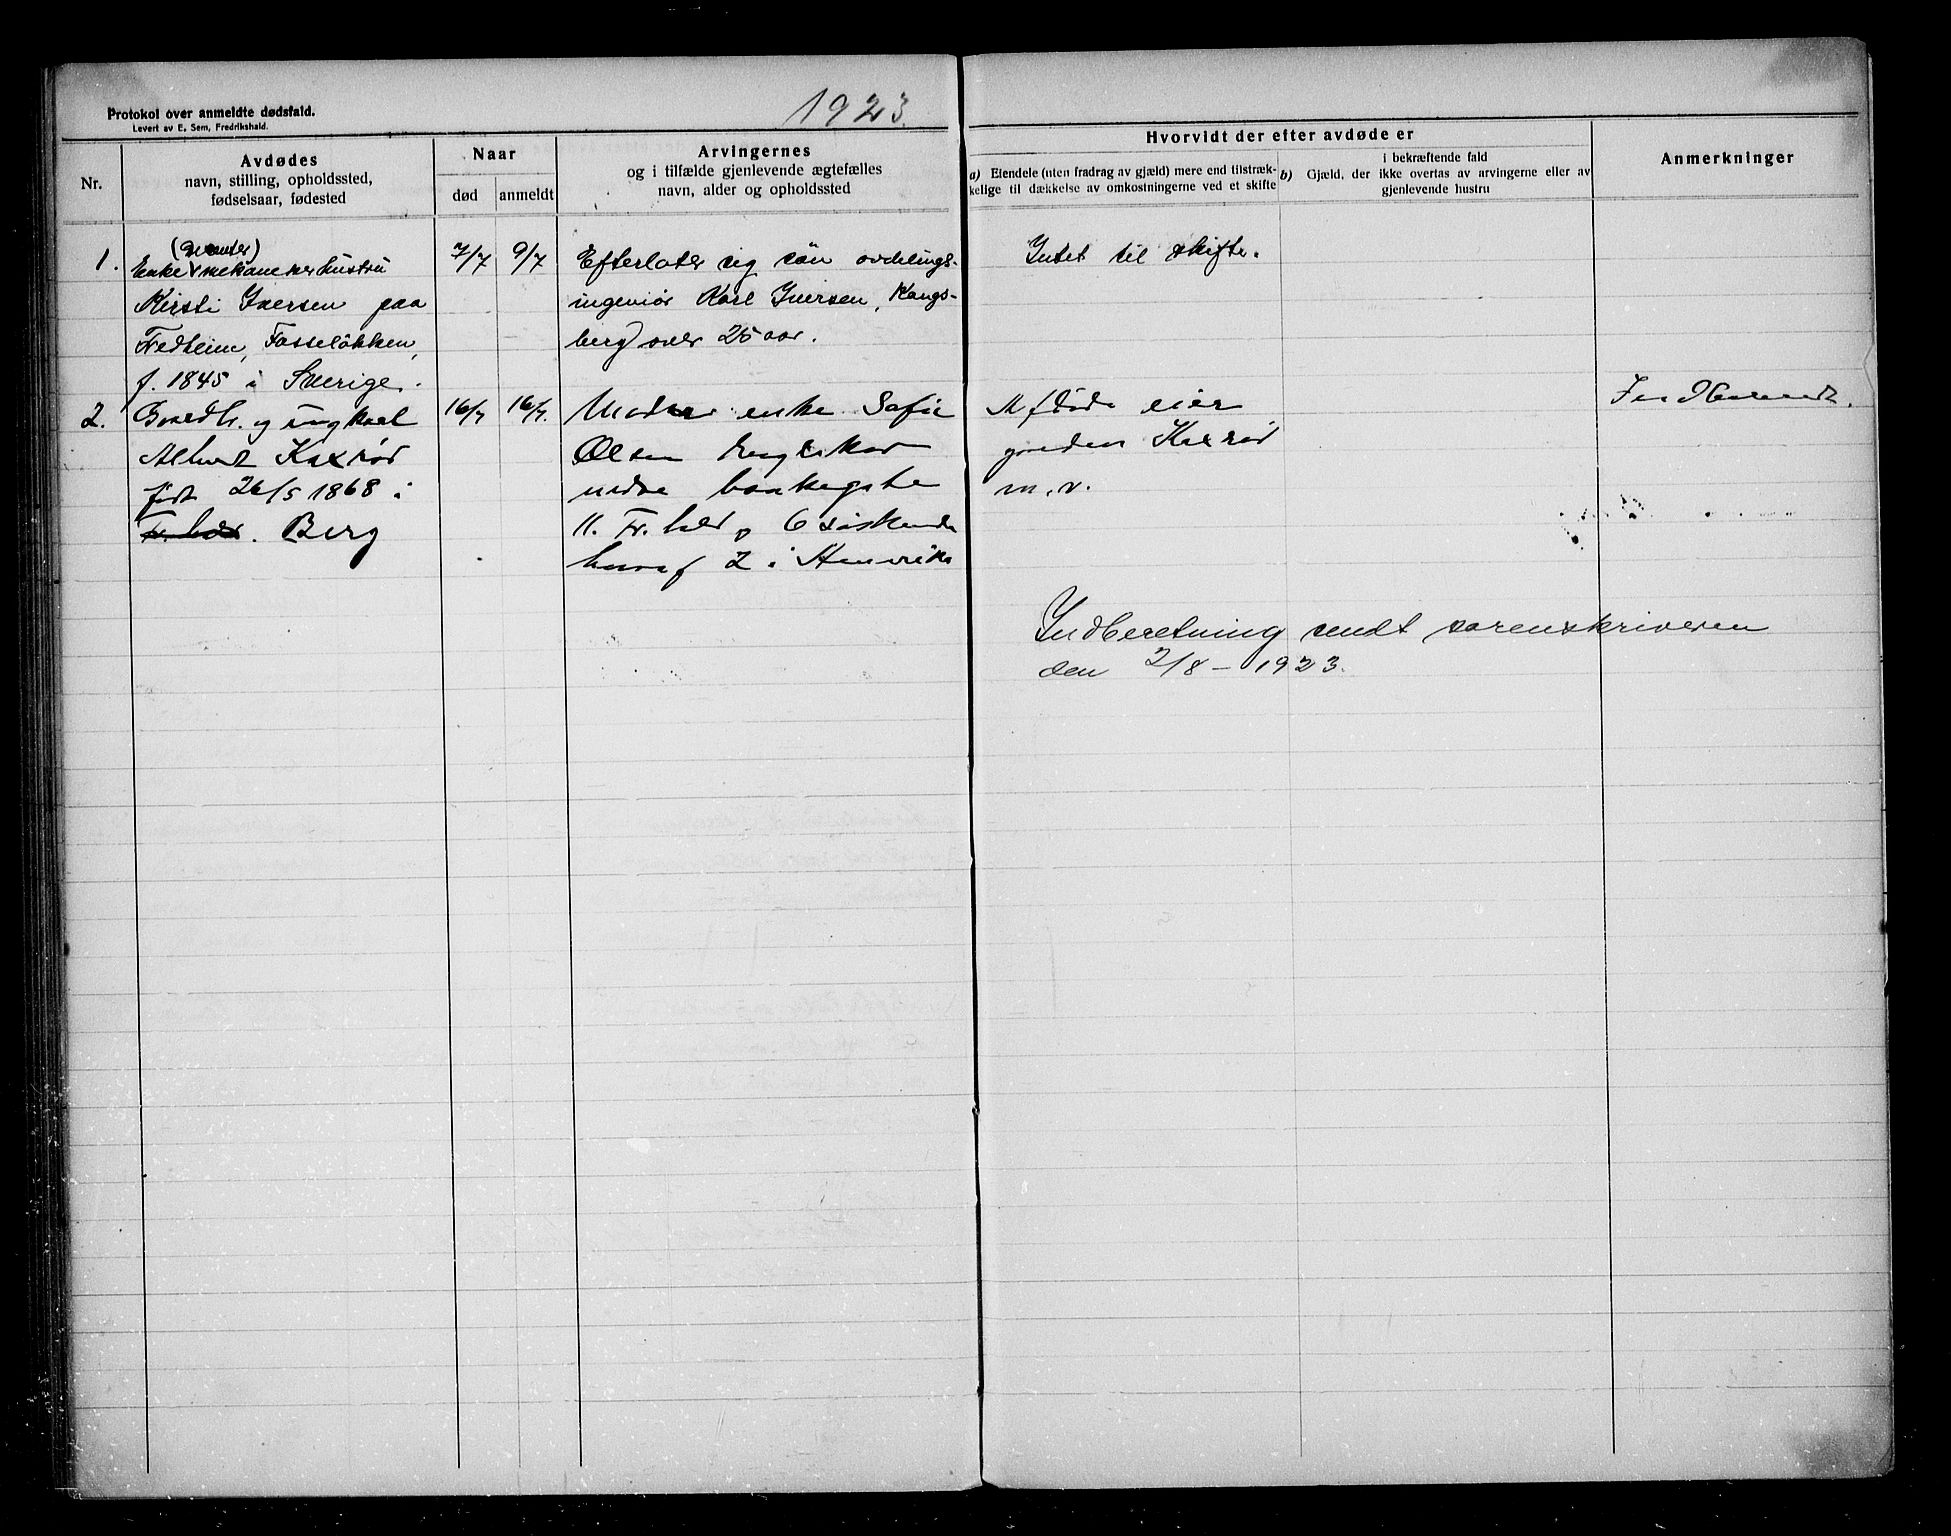 Protokol over anmeldte dødsfald.
Levert av E. Sem, Fredrikshald.
1923.
Nr.
Avdødes
navn, stilling, opholdssted,
fødselsaar, fødested
Naar
død
anmeldt
Arvingernes
og i tilfælde gjenlevende ægtefælles
navn, alder og opholdssted
Hvorvidt der efter avdøde er
a) Eiendele (uten fradrag av gjæld) mere end tilstræk-
kelige til dækkelse av omkostningerne ved et skifte
b) Gjæld, der i bekræftende fald ikke overtas av arvingerne eller av
gjenlevende hustru
Anmerkninger
1.
Enke
Kirsti Iversen paa
Fredheim, Fosseløkken,
f. 1845 i Sverige.
7/7
9/7
Efterlater sig søn avdelings-
ingeniør Karl Iversen, Kongs-
berg over 25 aar.
Intet til skifte.
2.
Gaardbr. og ungkarl
Albert Kaxrød
født 26/5 1868 i
Fr.hald. Berg
16/7
16/7.
Moder enke Sofie
Olsen
nedre bankegate
11. Fr.hald og 6 søskende
hvoraf 2 i Amerika
Afdøde eier
gaarden Kaxrød
m.v.
Indberetning sendt sorenskriveren
den 2/8 - 1923.